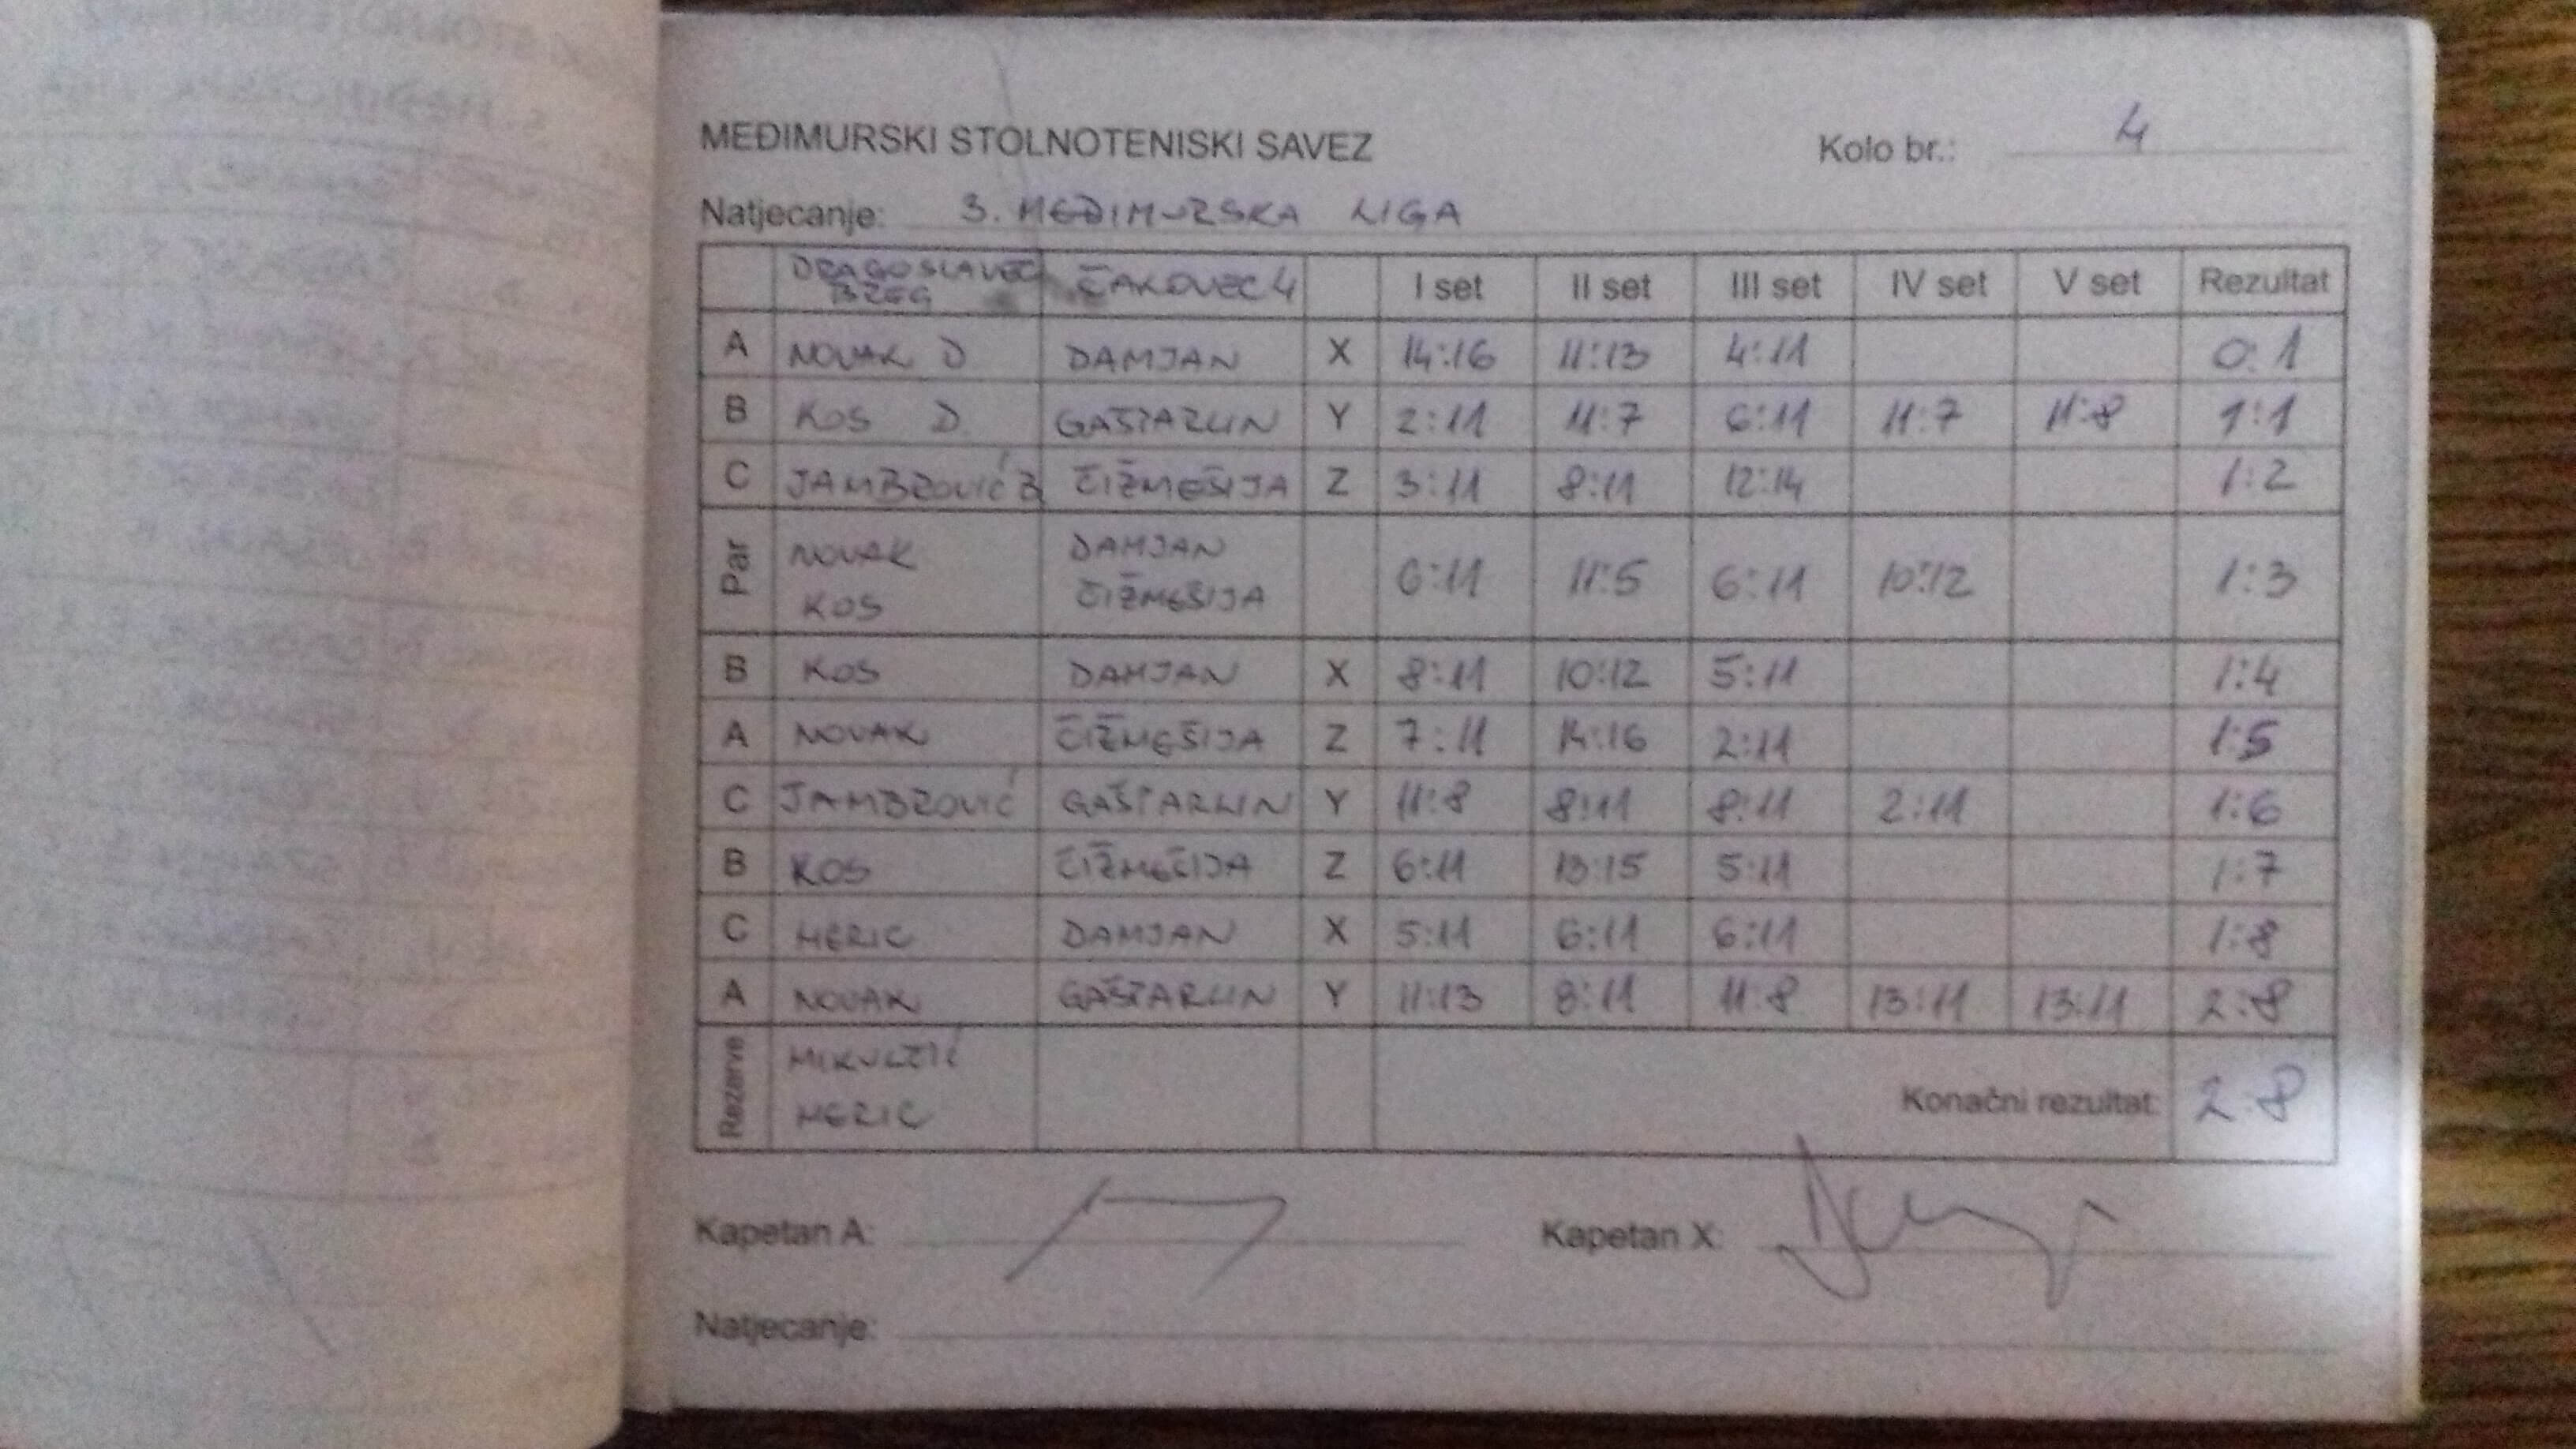 MEĐIMURSKI STOLNOTENISKI SAVEZ Kolo br.: 4
Natjecanje: 3. MEĐIMURSKA LIGA
DRAGOSLAVEC BREG ČAKOVEC 4 I set II set III set IV set V set Rezultat
A NOVAK D DAMJAN X 14:16 11:13 4:11 0:1
B KOS D. GAŠPARLIN Y 2:11 11:7 6:11 11:7 11:8 1:1
C JAMBROVIĆ B ČIŽMEŠIJA Z 3:11 8:11 12:14 1:2
Par NOVAK KOS DAMJAN ČIŽMEŠIJA 6:11 11:5 6:11 10:12 1:3
B KOS DAMJAN X 8:11 10:12 5:11 1:4
A NOVAK ČIŽMEŠIJA Z 7:11 14:16 2:11 1:5
C JAMBROVIĆ GAŠPARLIN Y 11:8 8:11 8:11 2:11 1:6
B KOS ČIŽMEŠIJA Z 6:11 13:15 5:11 1:7
C HERIC DAMJAN X 5:11 6:11 6:11 1:8
A NOVAK GAŠPARLIN Y 11:13 8:11 11:8 13:11 13:11 2:8
Rezerve MIKULČIĆ HERIC Konačni rezultat: 2:8
Kapetan A: Kapetan X:
Natjecanje: